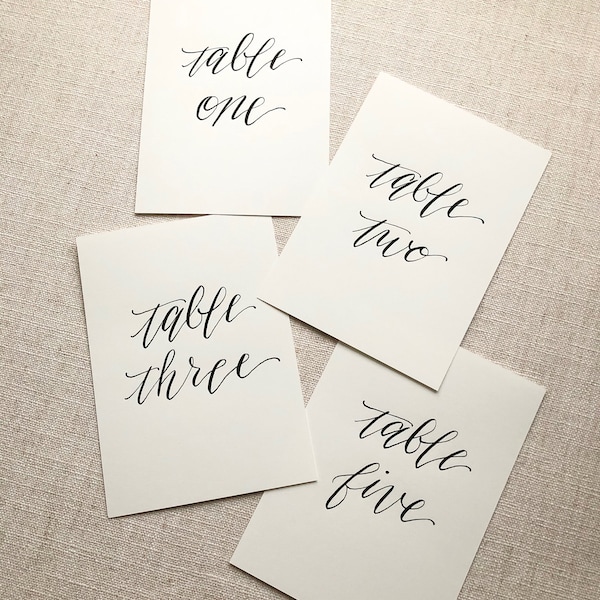 table
one
table
two
table
three
table
five